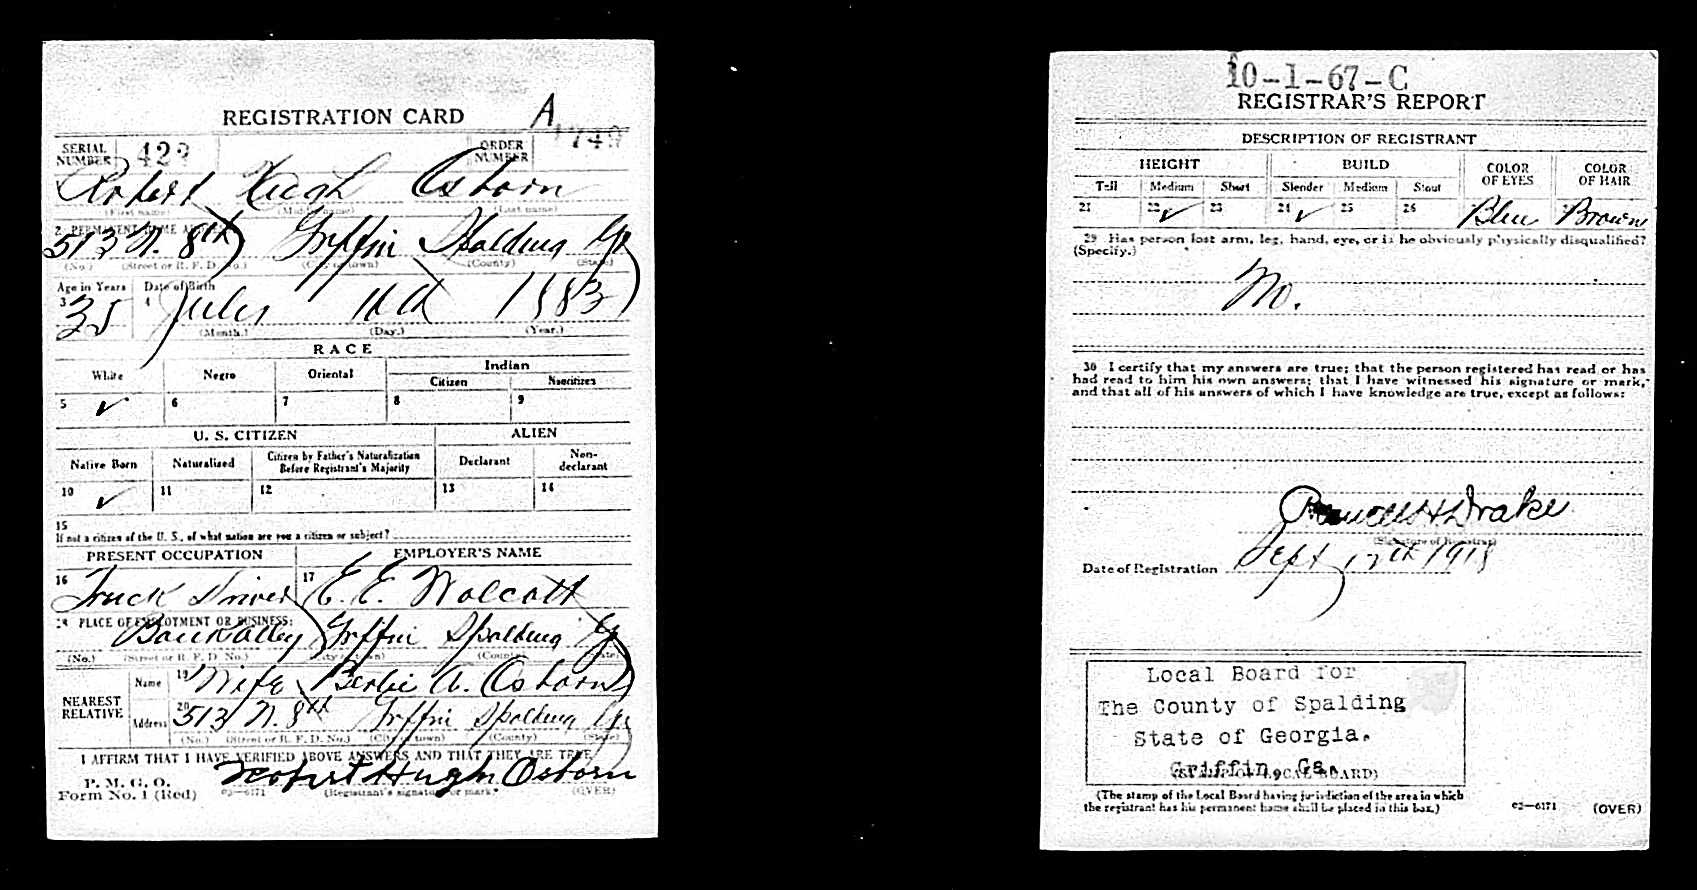 REGISTRATION CARD A
SERIAL NUMBER 423 ORDER NUMBER 1749
Robert Hugh Osborn
(First name) (Middle name) (Last name)
2 PERMANENT HOME ADDRESS
513 N. 8th Griffin Spalding Ga
(No.) (Street or R. F. D. No.) (City or town) (County) (State)
Age in Years Date of Birth
3 35 4 July 11th 1883
(Month.) (Day.) (Year.)
RACE
White Negro Oriental Indian
Citizen Noncitizen
5 ✓ 6 7 8 9
U. S. CITIZEN ALIEN
Native Born Naturalized Citizen by Father's Naturalization Before Registrant's Majority Declarant Non-declarant
10 ✓ 11 12 13 14
15
If not a citizen of the U. S., of what nation are you a citizen or subject?
PRESENT OCCUPATION EMPLOYER'S NAME
16 Truck Driver 17 E. E. Wolcott
18 PLACE OF EMPLOYMENT OR BUSINESS:
Bank Alley Griffin Spalding Ga
(No.) (Street or R. F. D. No.) (City or town) (County) (State)
NEAREST RELATIVE
Name 19 Wife A. Osborn
Address 20 513 N. 8th Griffin Spalding Ga
(No.) (Street or R. F. D. No.) (City or town) (County) (State)
I AFFIRM THAT I HAVE VERIFIED ABOVE ANSWERS AND THAT THEY ARE TRUE
P. M. G. O.
Form No. 1 (Red) 03—6171 Robert Hugh Osborn
(Registrant's signature or mark) (OVER)
10-1-67-C
REGISTRAR'S REPORT
DESCRIPTION OF REGISTRANT
HEIGHT BUILD COLOR OF EYES COLOR OF HAIR
Tall Medium Short Slender Medium Stout
21 22 ✓ 23 24 ✓ 25 26 Blue Brown
29 Has person lost arm, leg, hand, eye, or is he obviously physically disqualified?
(Specify.)
No.
30 I certify that my answers are true; that the person registered has read or has
had read to him his own answers; that I have witnessed his signature or mark,
and that all of his answers of which I have knowledge are true, except as follows:
H Drake
(Signature of Registrar)
Date of Registration Sept 12th 1918
Local Board for
The County of Spalding
State of Georgia.
Griffin, Ga.
(STAMP OF LOCAL BOARD)
(The stamp of the Local Board having jurisdiction of the area in which
the registrant has his permanent home shall be placed in this box.)
03—6171 (OVER)